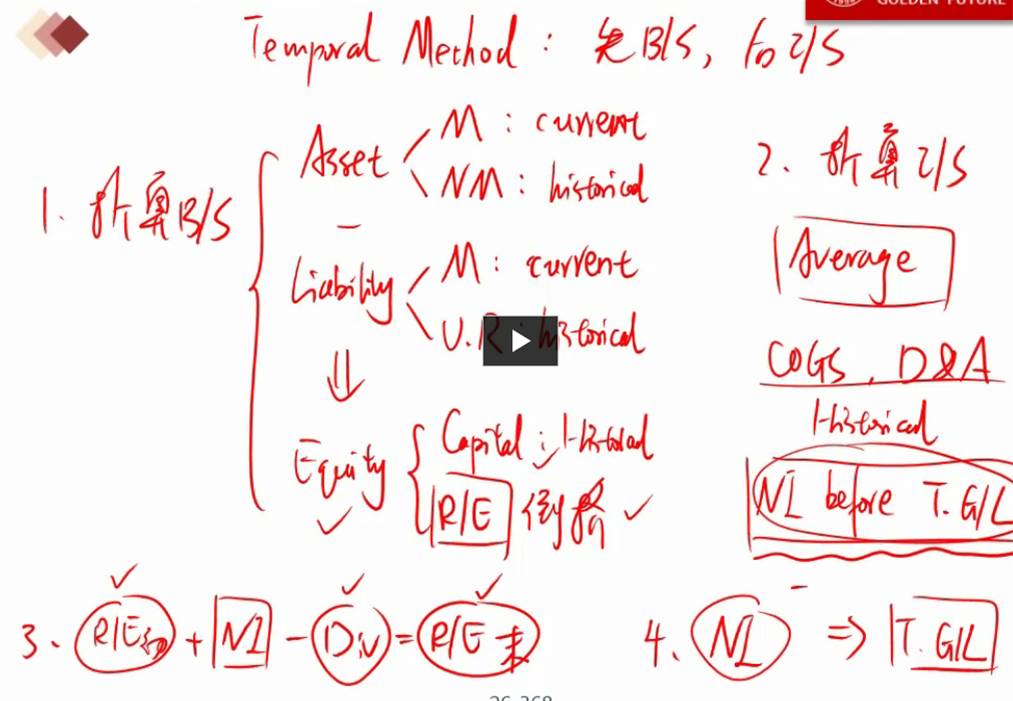 GOLDEN FUTURE
Temporal Method : 先B/S, 后I/S
1. 折算B/S
Asset
M : current
NM : historical
-
Liability
M : current
U.R : historical
⇓
Equity ✓
Capital : Historical
R/E 倒挤 ✓
2. 折算I/S
Average
COGS, D&A
Historical
NI before T. G/L
3. R/E初 + NI - Div = R/E末
4. NI - ⇒ T. G/L